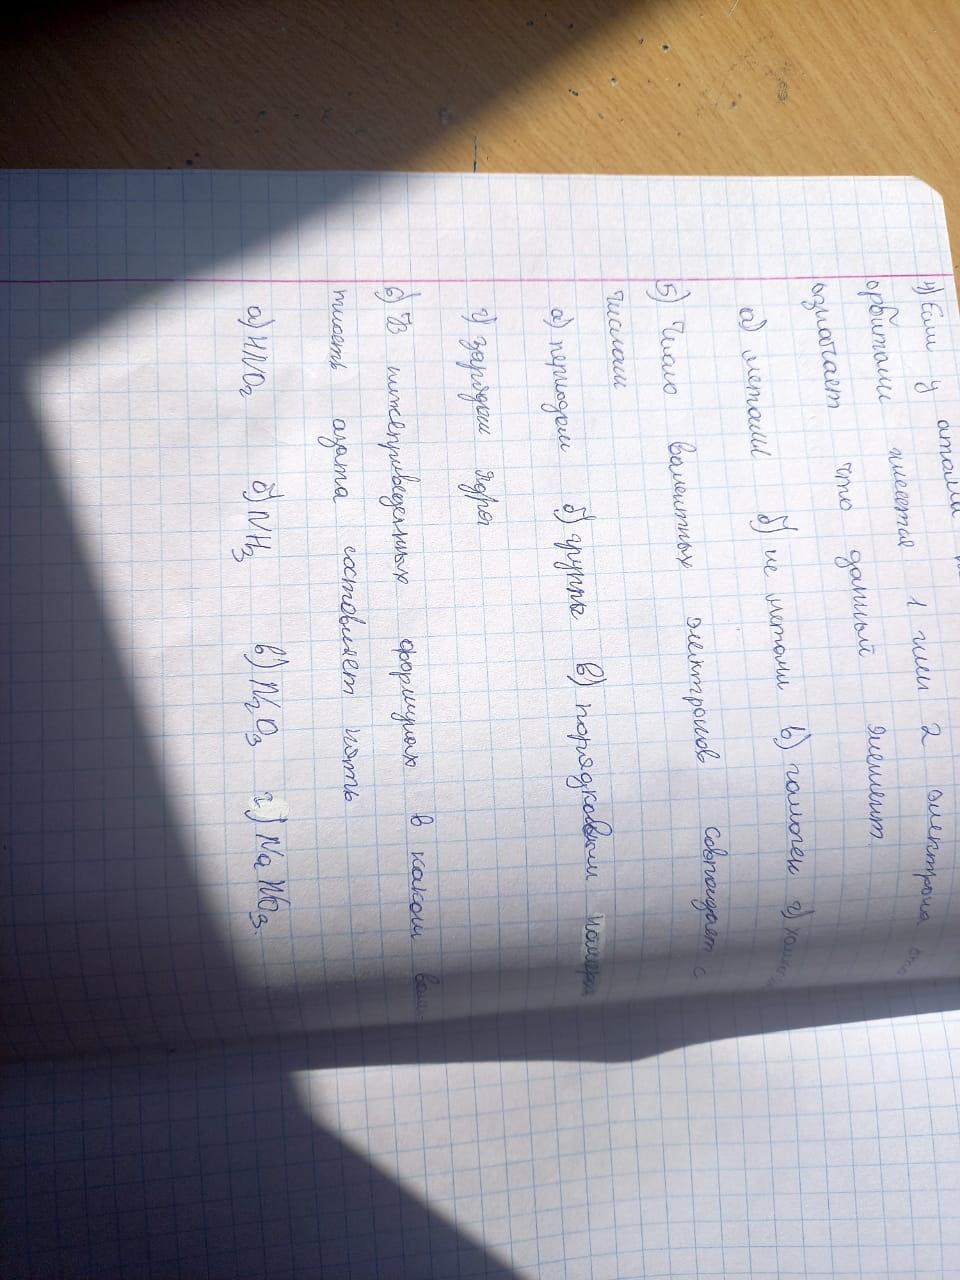 4) Если у атома
орбитали имеется 1 или 2 электрона это
означает что данный элемент
а) металл б) не металл в) галоген г)
5) Число валентных электронов совпадает с
числом
а) периодом б) группы в) порядковым номером
г) зарядом ядра
6) В нижеприведенных формулах в каком вали-
тность азота составляет пять
а) HNO2 б) NH3 в) N2O3 г) NaNO3.